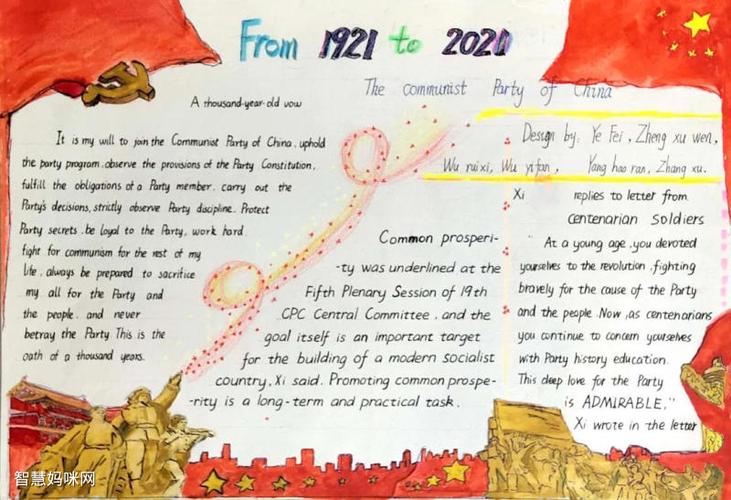 From 1921 to 2021
The communist Party of China
A thousand-year-old vow
It is my will to join the Communist Party of China, uphold
the party program, observe the provisions of the Party Constitution,
fulfill the obligations of a Party member, carry out the
Party's decisions, strictly observe Party discipline. Protect
Party secrets, be loyal to the Party, work hard
fight for communism for the rest of my
life, always be prepared to sacrifice
my all for the Party and
the people, and never
betray the Party This is the
oath of a thousand years.
Common prosperi-
-ty was underlined at the
Fifth Plenary Session of 19th
CPC Central Committee, and the
goal itself is an important target
for the building of a modern socialist
country, Xi said. Promoting common prospe-
-rity is a long-term and practical task.
Design by: Ye Fei, Zheng xu wen,
Wu rui xi, Wu yi fan, Yang hao ran, Zhang xu.
Xi replies to letter from
centenarian soldiers
"At a young age, you devoted
yourselves to the revolution, fighting
bravely for the cause of the Party
and the people. Now, as centenarians
you continue to concern yourselves
with Party history education.
This deep love for the Party
is ADMIRABLE,"
Xi wrote in the letter
智慧妈咪网